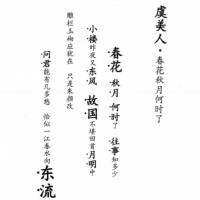 虞美人·春花秋月何时了
春花秋月何时了 往事知多少
小楼昨夜又东风 故国不堪回首月明中
雕栏玉砌应犹在 只是朱颜改
问君能有几多愁 恰似一江春水向东流